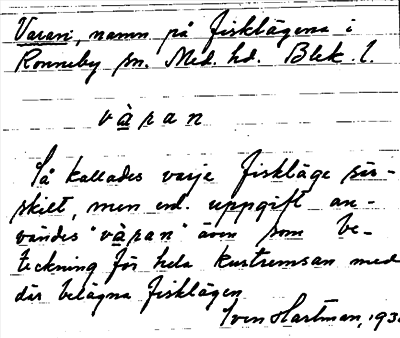 Varan, namn på fisklägena i
Ronneby sn. Med. hd. Blek. l.
vàran
Så kallades varje fiskläge sär-
skilt, men enl. uppgift an-
vändes "vàran" även som be-
teckning för hela kustremsan med
där belägna fisklägen
Sven Hartman, 193